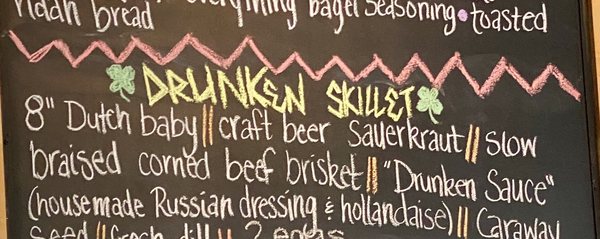 bagel seasoning • toasted
bread
DRUNKEN SKILLET
8" Dutch baby || craft beer Sauerkraut || slow
braised corned beef brisket || "Drunken Sauce"
(housemade Russian dressing & hollandaise) || Caraway
Seed || fresh dill || 2 eggs